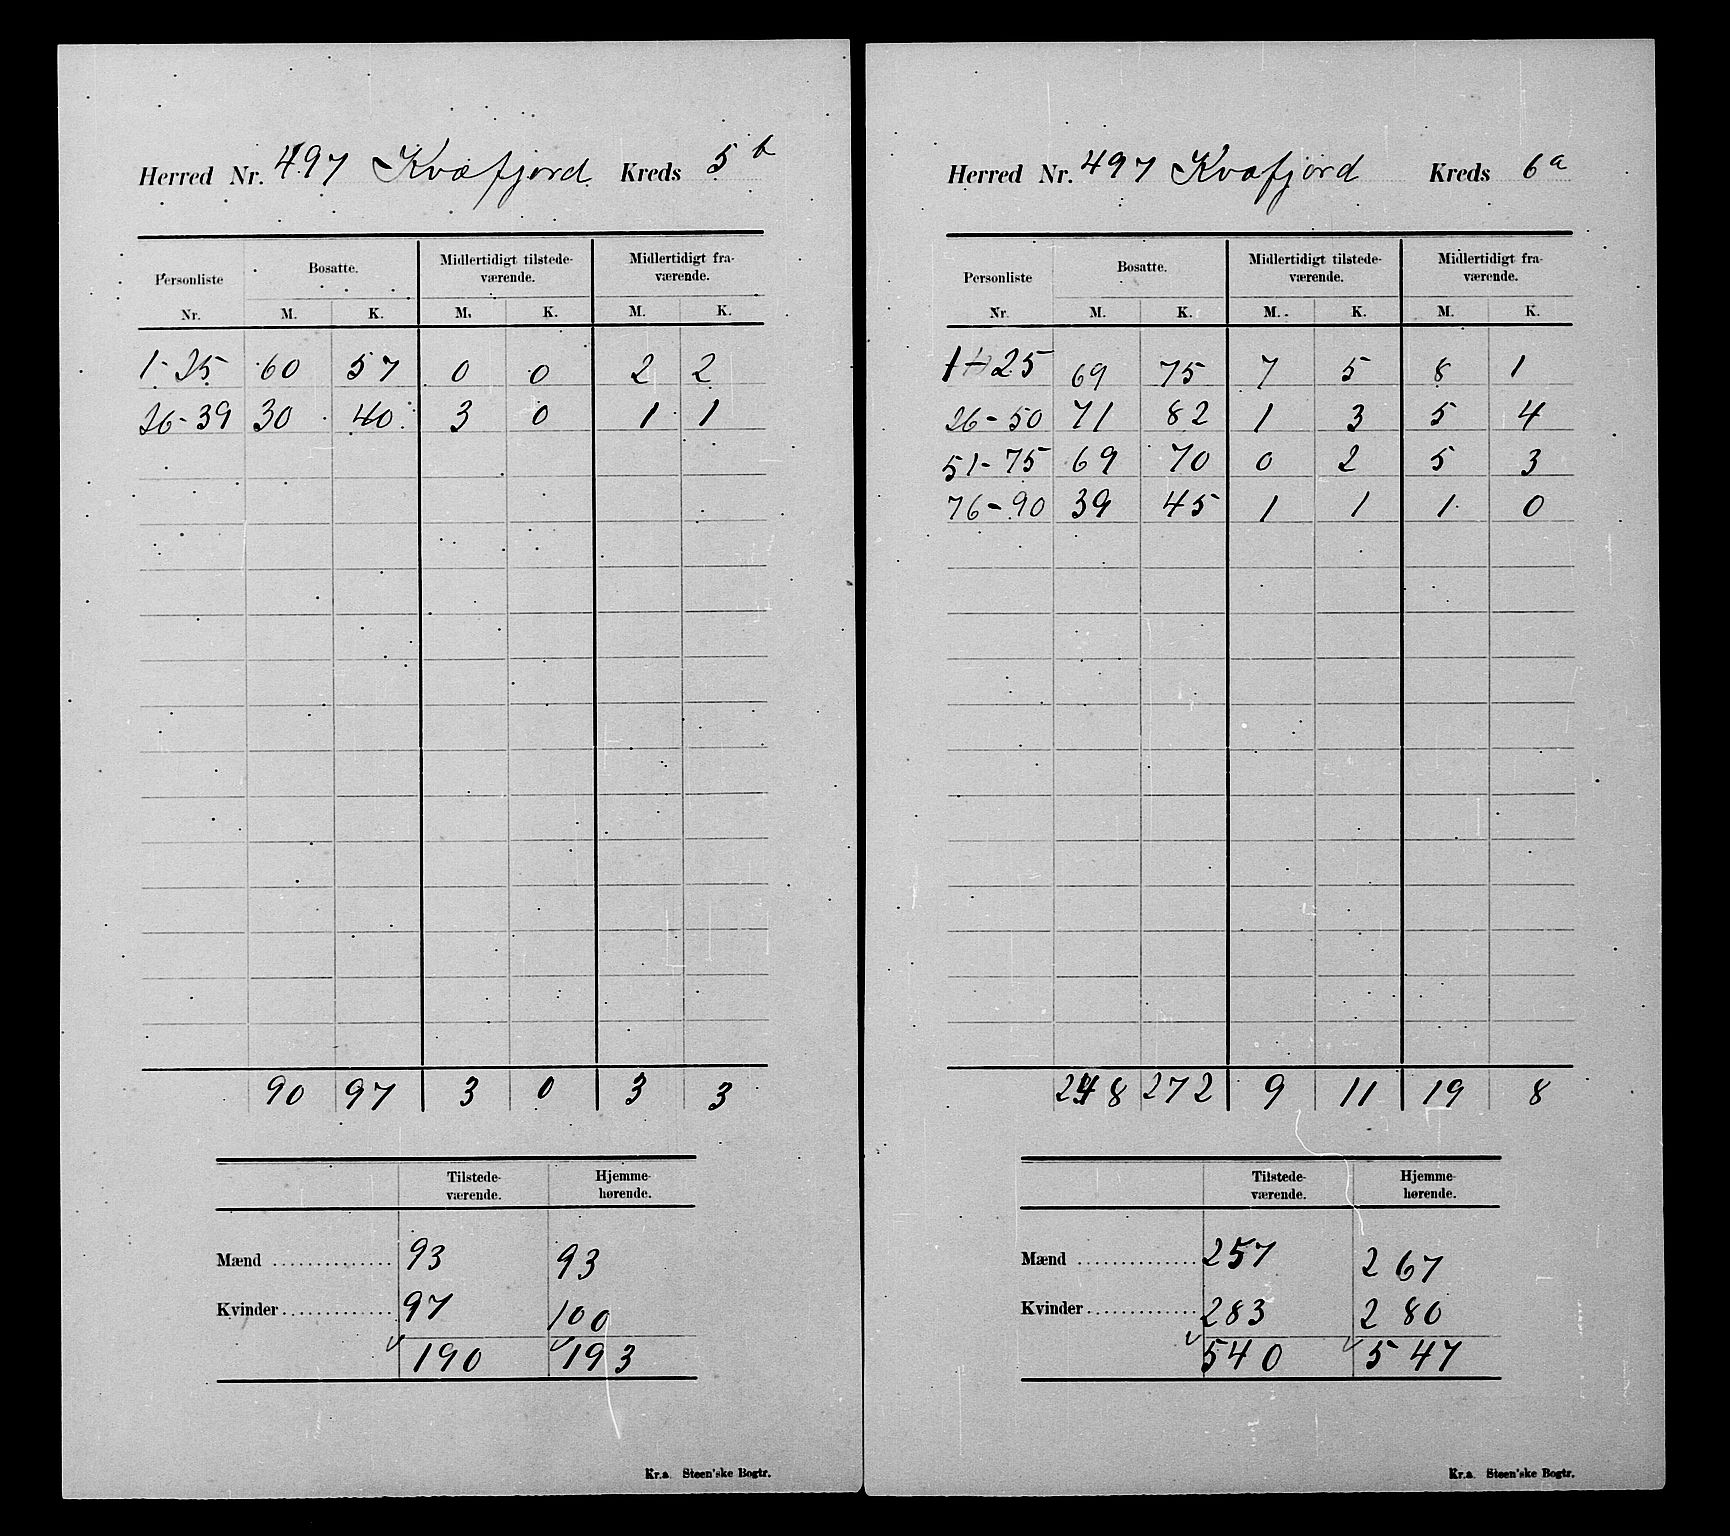 Herred Nr. 497 Kvæfjord Kreds 5 b
Personliste Bosatte. Midlertidigt tilstede- Midlertidigt fra-
værende. værende.
Nr. M. K. M. K. M. K.
1-25 60 57 0 0 2 2
26-39 30 40 3 0 1 1
90 97 3 0 3 3
Tilstede- Hjemme-
værende. hørende.
Mænd 93 93
Kvinder 97 100
190 193
Kr.a. Steen'ske Bogtr.
Herred Nr. 497 Kvæfjord Kreds 6 a
Personliste Bosatte. Midlertidigt tilstede- Midlertidigt fra-
værende. værende.
Nr. M. K. M. K. M. K.
1-25 69 75 7 5 8 1
26-50 71 82 1 3 5 4
51-75 69 70 0 2 5 3
76-90 39 45 1 1 1 0
248 272 9 11 19 8
Tilstede- Hjemme-
værende. hørende.
Mænd 257 267
Kvinder 283 280
540 547
Kr.a. Steen'ske Bogtr.